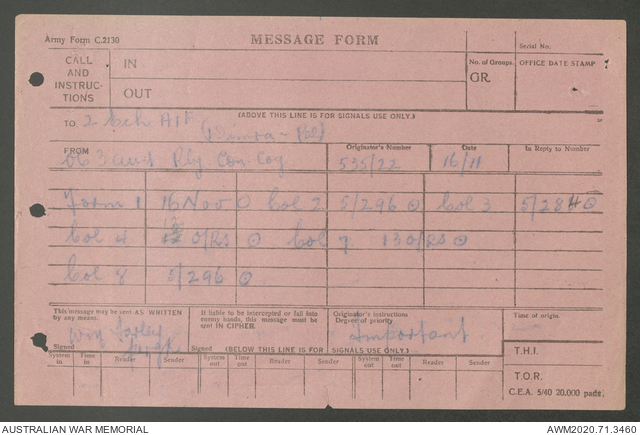 Army Form C.2130 MESSAGE FORM Serial No.
CALL AND INSTRUCTIONS IN No. of Groups. GR. OFFICE DATE STAMP
OUT
(ABOVE THIS LINE IS FOR SIGNALS USE ONLY.)
TO 2 Ech
FROM OC 3 Aust Rly Con Coy Originator's Number 535/22 Date 16/11 In Reply to Number
Form 1 16 Nov ⊙ Col 2 5/296 ⊙ Col 3 5/284 ⊙
Col 4 O/RS ⊙ Col 7 13 O/RS ⊙
Col 8 5/296 ⊙
This message may be sent AS WRITTEN by any means. If liable to be intercepted or fall into enemy hands, this message must be sent IN CIPHER. Originator's instructions Degree of priority. Important Time of origin.
Signed Signed (BELOW THIS LINE IS FOR SIGNALS USE ONLY.) T.H.I.
System in Time in Reader Sender System out Time out Reader Sender System out Time out Reader Sender T.O.R.
C.E.A. 5/40 20,000 pads.
AUSTRALIAN WAR MEMORIAL AWM2020.71.3460